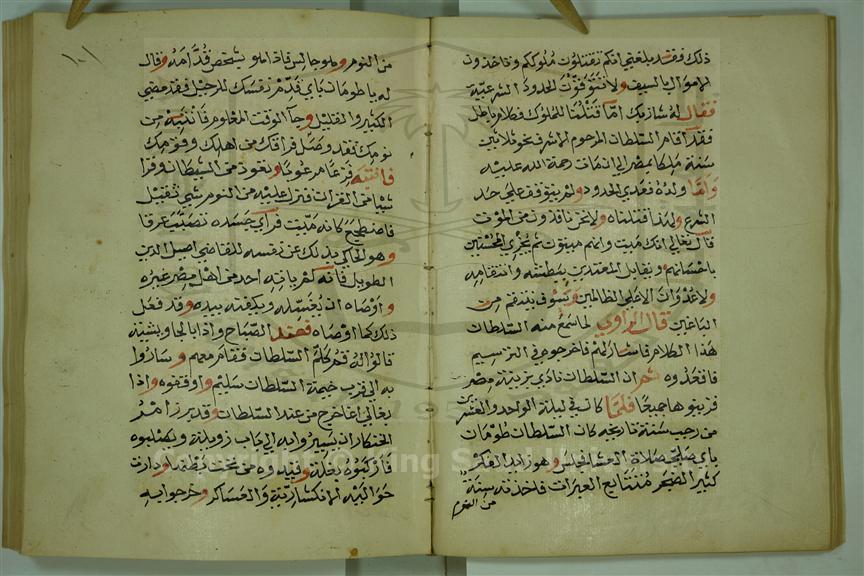 ذلك فقد بلغني انكم تقتلون ملوككم وتاخذون
الاموال بالسيف ولا تقفون الحدود الشرعية
فقال له شاربك امّا قتلنا للملوك فكلام باطل
فقد اقام السلطان المرحوم الاشرف نحو ثلاثين
سنة ملكا بمصر الي ان مات رحمة الله عليه
وامّا ولده فتعدي الحدود ولم يقف علي حد
الشرع ولهذا قتلناه ولا نحن نافدون من الموت
قال تعالي انك ميت وانهم ميتون ثم يجزي المحسنين
باحسانهم ويقابل المعتدين بسطشه وانتقامه
ولا عدوان الا علي الظالمين وسوف ينتقم من
الباغين قال الراوي لما سمع منه السلطان
هذا الكلام فاشار لهم فاخرجوه في الترسيم
فاخذوه ثم ان السلطان نادي بزينة مصر
فزينوها جميعا فلمّا كان في ليلة الواحد والعشرين
من رجب سنة تاريخه كان السلطان طومان
باي صلي صلاة العشا فجلس وهو زايد الفكر
كثير الضجر متتابع العبرات فاخذته سنة
من النوم
١٠١
من النوم وهو جالس فاذا هو بشخص قدّامه وقال
له يا طومان باي قدّم نفسك للرحيل فقد مضي
الكثير والقليل وجآ الوقت المعلوم فانتبه من
نومك فقد وصل فراقك من اهلك وقومك
فانتبه فزعا مرعوبا وتعوذ من الشيطان وقرا
شيا من القران فنزل عليه من النوم شي ثقيل
فاضطجع كانه ميّت فراي جسده تصبّب عرقا
وهو الحاكي بذلك عن نفسه للقاضي اصيل الدين
الطويل فانه لم ياته احد من اهل مصر غيره
واوصاه ان يغسّله ويكفنه بيده وقد فعل
ذلك كما اوصاه فعند الصباح واذا بالجاويشية
قالوا له قم كلم السلطان فقام معهم وساروا
به الي قرب خيمة السلطان سليم واوقفوه واذا
بغالي اغا خرج من عند السلطان وقد برز امر
الخنكار ان يسيروا به الي باب زويلة ويصلبوه
فاركبوه بغلة وقيدوه من تحت بطنها ودارت
حواليه الانكشارية والعساكر وخرجوا به
Copyright © King Saud University
1957